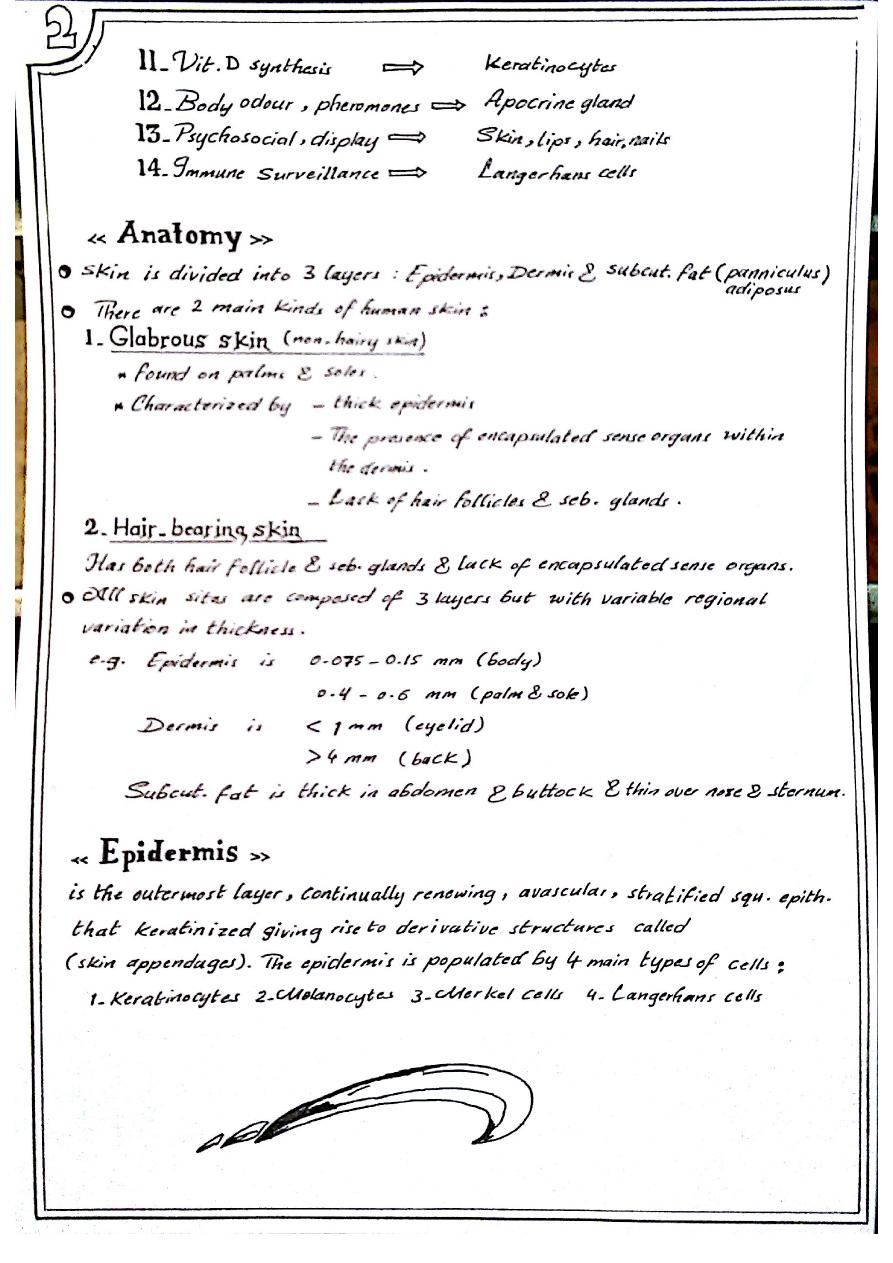 2
11- Vit. D synthesis ⇒ Keratinocytes
12- Body odour, pheromones ⇒ Apocrine gland
13- Psychosocial, display ⇒ Skin, lips, hair, nails
14- Immune Surveillance ⇒ Langerhans cells
<< Anatomy >>
• Skin is divided into 3 layers : Epidermis, Dermis & subcut. fat (panniculus)
adiposus
• There are 2 main kinds of human skin :
1- Glabrous skin (non-hairy skin)
* Found on palms & soles.
* Characterized by - thick epidermis
- The presence of encapsulated sense organs within
the dermis.
- Lack of hair follicles & seb. glands.
2- Hair-bearing skin
Has both hair follicle & seb. glands & lack of encapsulated sense organs.
• All skin sites are composed of 3 layers but with variable regional
variation in thickness.
e.g. Epidermis is 0.075 - 0.15 mm (body)
0.4 - 0.6 mm (palm & sole)
Dermis is < 1 mm (eyelid)
> 4 mm (back)
Subcut. fat is thick in abdomen & buttock & thin over nose & sternum.
<< Epidermis >>
is the outermost layer, continually renewing, avascular, stratified squ. epith.
that keratinized giving rise to derivative structures called
(skin appendages). The epidermis is populated by 4 main types of cells :
1- Keratinocytes 2- Melanocytes 3- Merkel cells 4- Langerhans cells